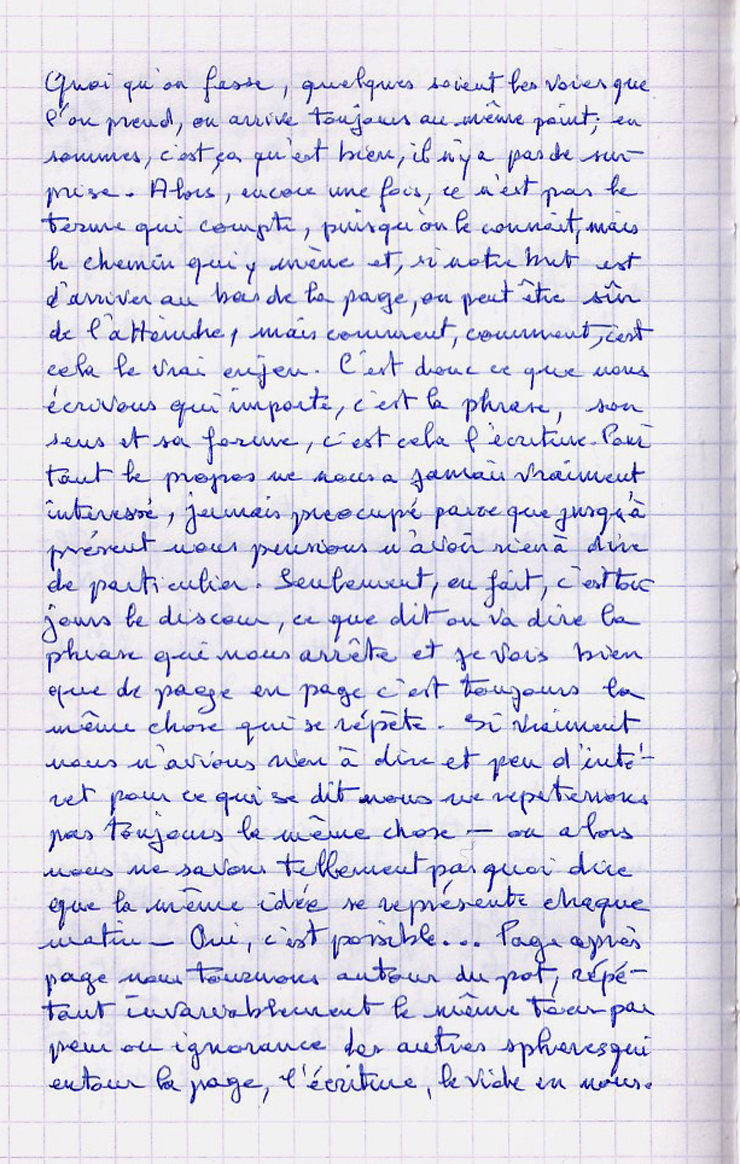 Quoi qu'on fasse, quelques soient les voies que
l'on prend, on arrive toujours au même point; en
sommes, c'est ça qu'est bien, il n'y a pas de sur-
prise. Alors, encore une fois, ce n'est pas le
terme qui compte, puisqu'on le connait, mais
le chemin qui y mène et, si notre but est
d'arriver au bas de la page, on peut être sûr
de l'atteindre, mais comment, comment, c'est
cela le vrai enjeu. C'est donc ce que nous
écrivons qui importe, c'est la phrase, son
sens et sa forme, c'est cela l'écriture. Pour
tant le propos ne nous a jamais vraiment
interessé, jamais préocupé parce que jusqu'à
présent nous pensions n'avoir rien à dire
de particulier. Seulement, en fait, c'est tou
jours le discour, ce que dit ou va dire la
phrase qui nous arrête et je vois bien
que de page en page c'est toujours la
même chose qui se répète. Si vraiment
nous n'avions rien à dire et peu d'inté-
ret pour ce qui se dit nous ne repeterions
pas toujours la même chose — ou alors
nous ne savons tellement pas quoi dire
que la même idée se représente chaque
matin — Oui, c'est possible... Page après
page nous tournons autour du pot, répé-
tant invariablement le même tour par
peur ou ignorance des autres spheres qui
entour la page, l'écriture, le vide en nous.